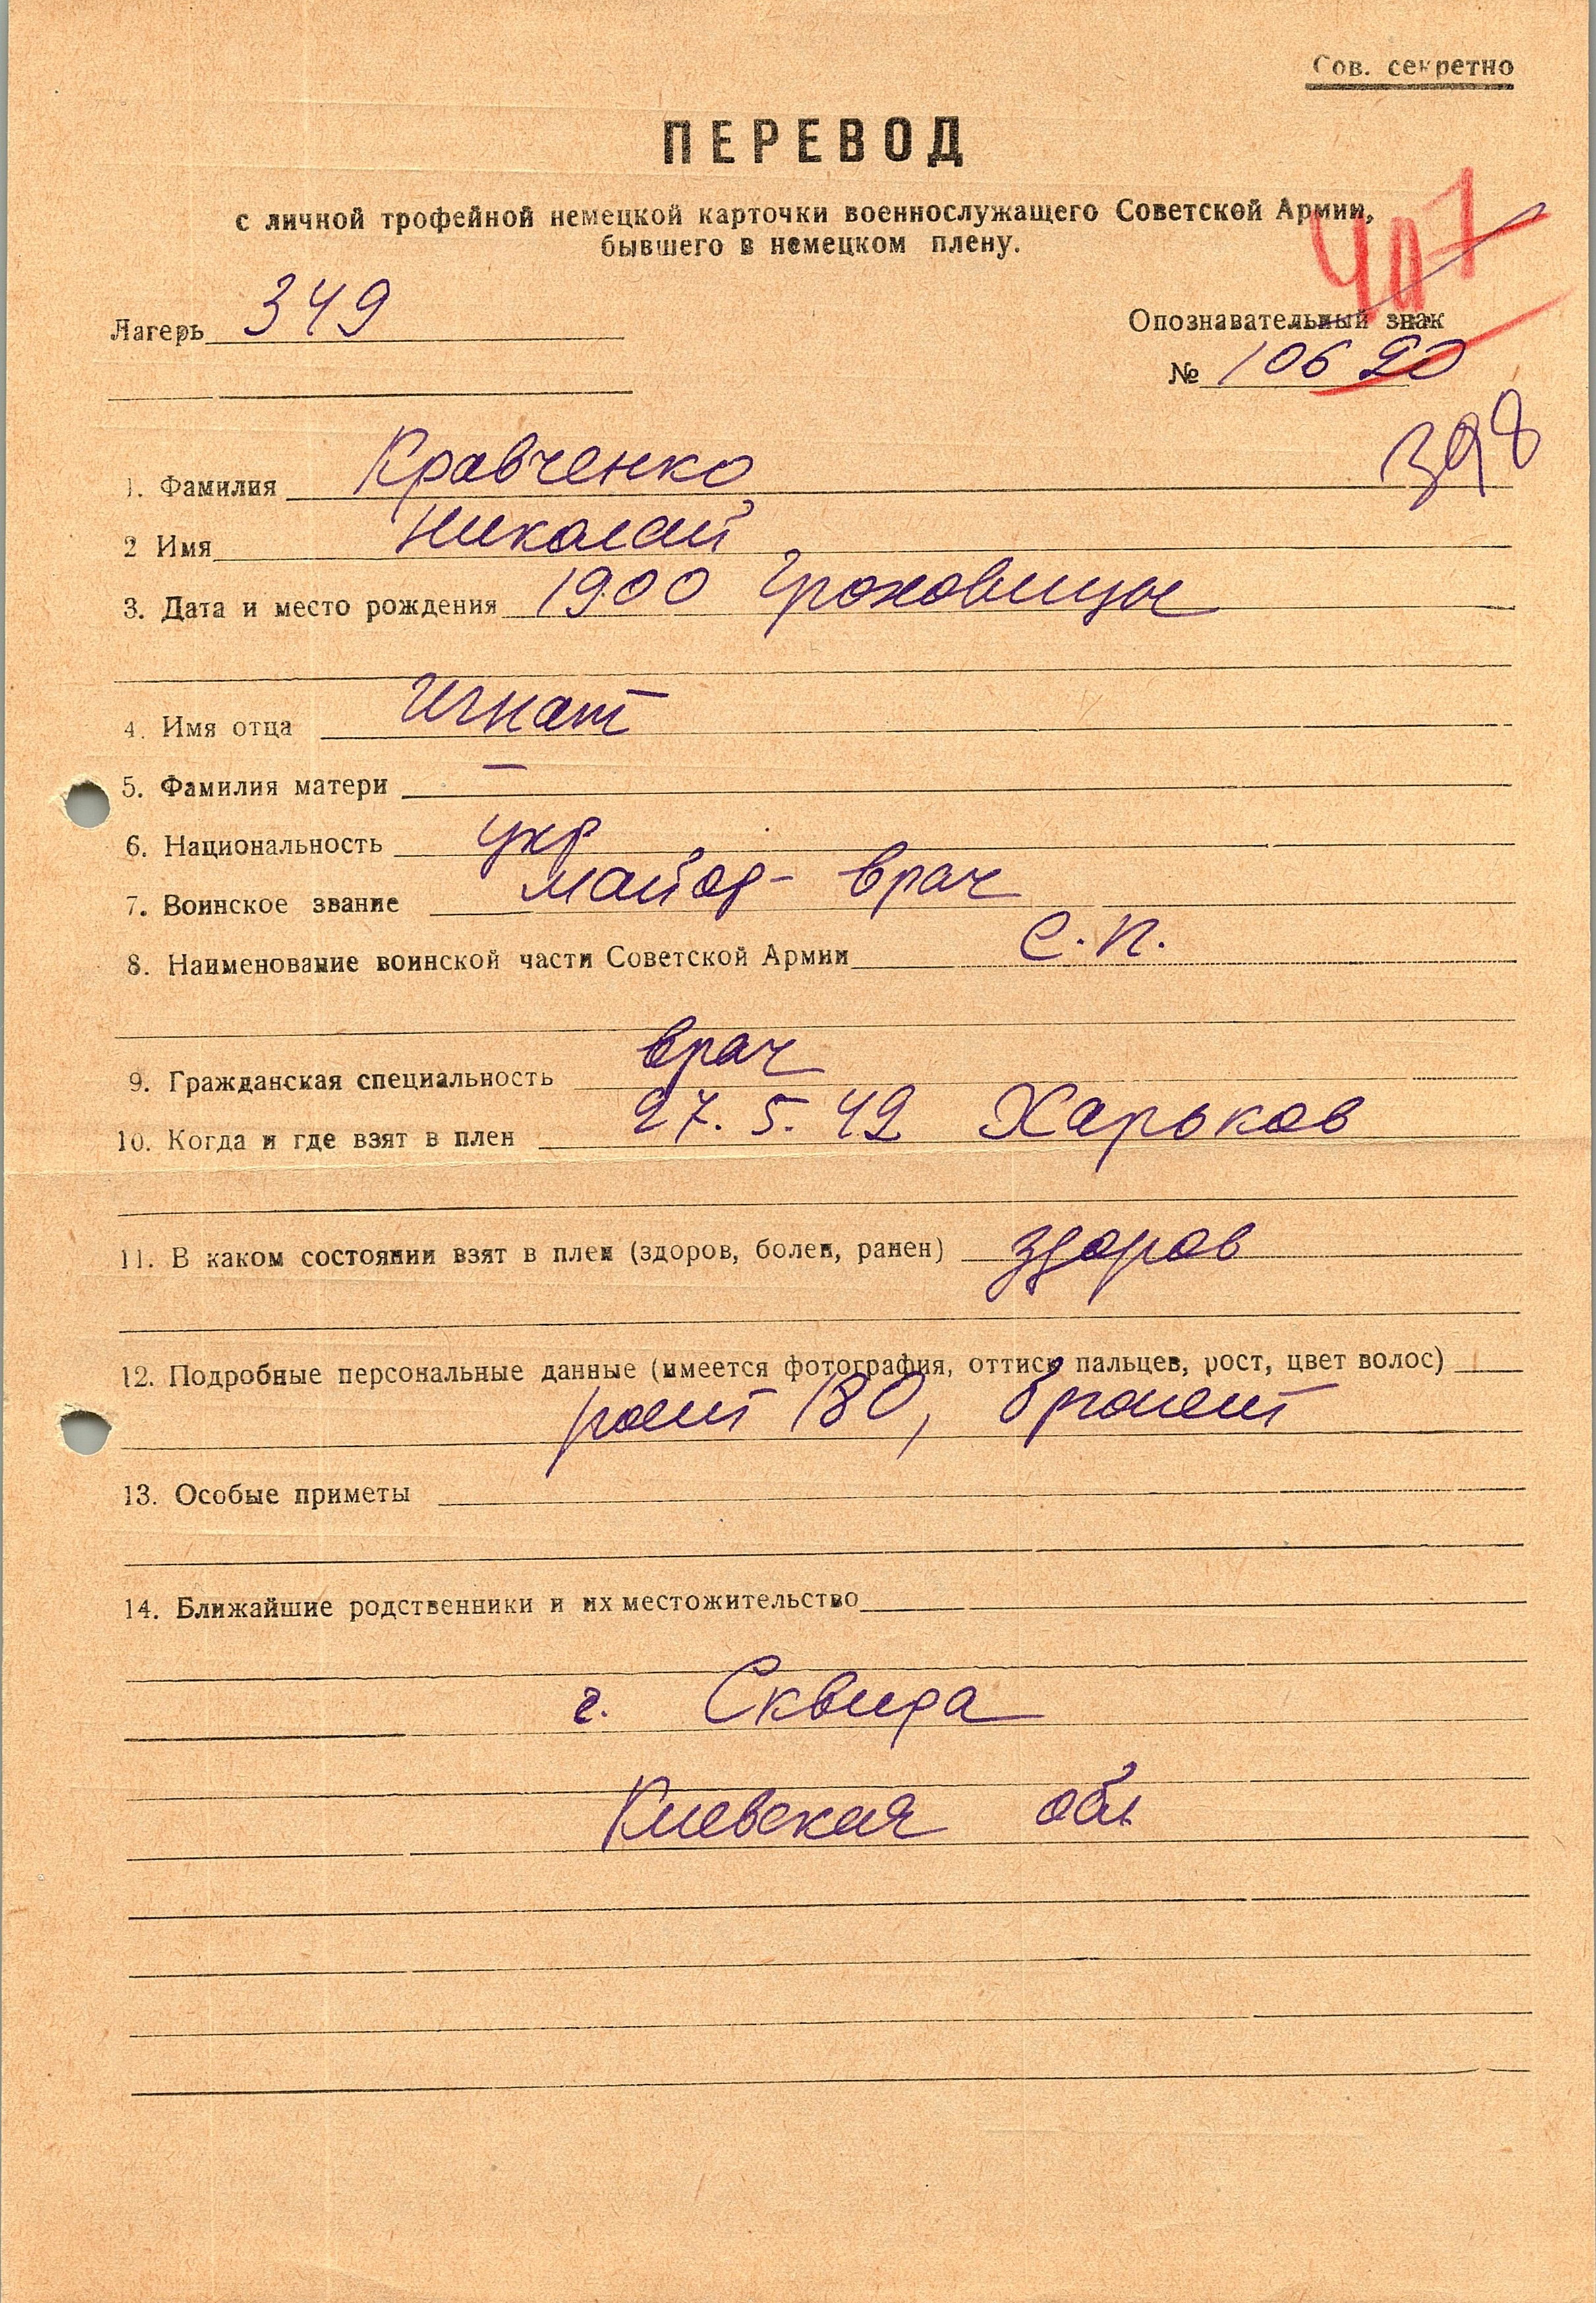 Сов. секретно
ПЕРЕВОД
с личной трофейной немецкой карточки военнослужащего Советской Армии,
бывшего в немецком плену.
407
Лагерь 349
Опознавательный знак
№ 10620
398
1. Фамилия Кравченко
2 Имя Николай
3. Дата и место рождения 1900
4. Имя отца Игнат
5. Фамилия матери —
6. Национальность укр
7. Воинское звание майор - врач
8. Наименование воинской части Советской Армии с.п.
9. Гражданская специальность врач
10. Когда и где взят в плен 27.5.42 Харьков
11. В каком состоянии взят в плен (здоров, болен, ранен) здоров
12. Подробные персональные данные (имеется фотография, оттиск пальцев, рост, цвет волос)
рост 180,
13. Особые приметы
14. Ближайшие родственники и их местожительство
г. Сквира
Киевская обл